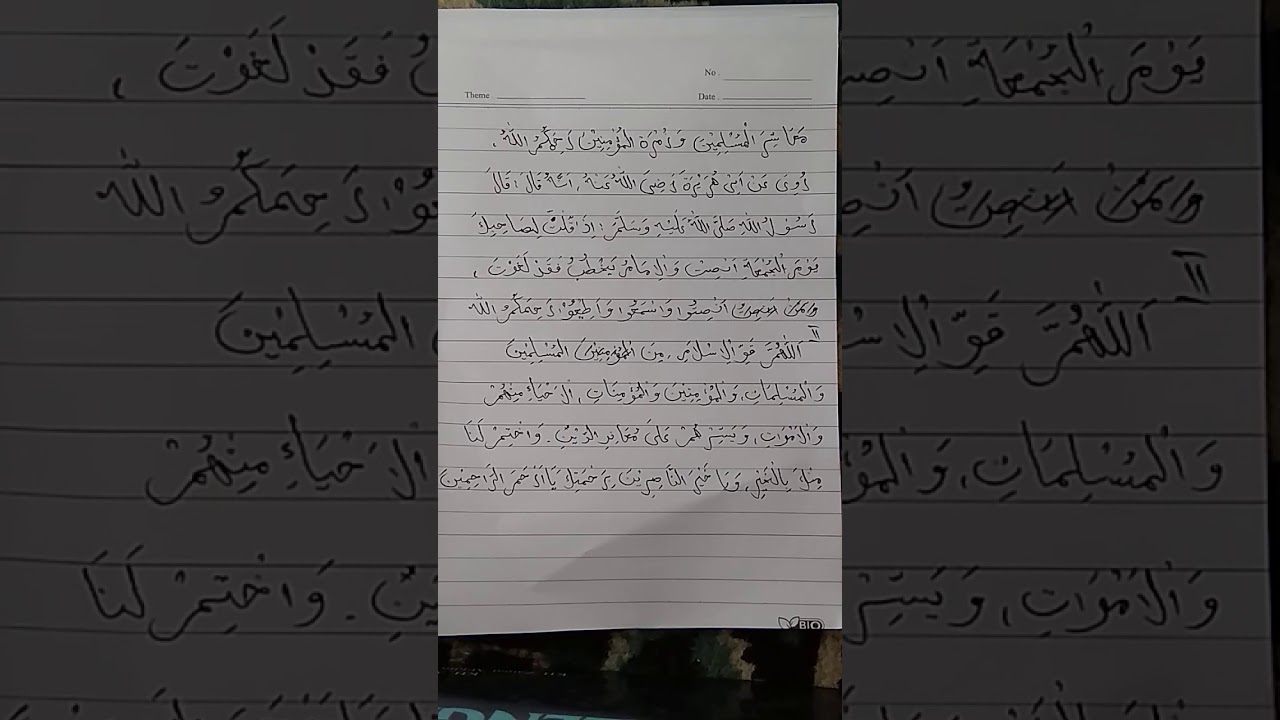 No.
Theme
Date
مَعَاشِرَ الْمُسْلِمِيْنَ وَزُمْرَةَ الْمُؤْمِنِيْنَ رَحِمَكُمُ اللّٰهُ،
رُوِىَ عَنْ اَبِى هُرَيْرَةَ رَضِىَ اللّٰهُ عَنْهُ، اَنَّهُ قَالَ: قَالَ
رَسُوْلُ اللّٰه صَلَّى اللّٰهُ عَلَيْهِ وَسَلَّمَ: اِذَاقُلْتَ لِصَاحِبِكَ
يَوْمَ الْجُمُعَةِ اَنْصِتْ وَالْاِمَامُ يَخْطُبُ فَقَدْ لَغَوْتَ،
اَنْصِتُوْا وَاسْمَعُوْا وَاَطِيْعُوْا رَحِمَكُمُ اللّٰه
اَللّٰهُمَّ قَوِّ الْاِسْلَامَ، مِنَ الْمُسْلِمِيْنَ
وَالْمُسْلِمَاتِ، وَالْمُؤْمِنِيْنَ وَالْمُؤْمِنَاتِ، اَلْاَحْيَاءِ مِنْهُمْ
وَالْاَمْوَاتِ، وَيَسِّرْهُمْ عَلَى مُعَانِدِ الدِّيْنِ. وَاخْتِمْ لَنَا
مِنْكَ بِالْخَيْرِ، وَيَا خَيْرَ النَّاصِرِيْنَ بِرَحْمَتِكَ يَااَرْحَمَ الرَّاحِمِيْنَ
BIO